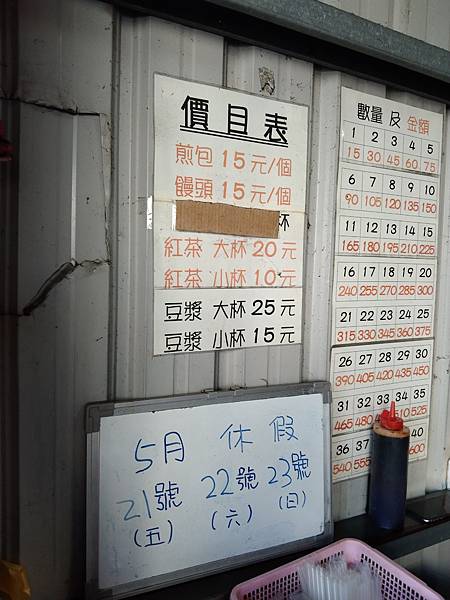 價目表
煎包 15元/個
饅頭 15元/個
杯
紅茶 大杯 20元
紅茶 小杯 10元
豆漿 大杯 25元
豆漿 小杯 15元
數量 及 金額
1 2 3 4 5
15 30 45 60 75
6 7 8 9 10
90 105 120 135 150
11 12 13 14 15
165 180 195 210 225
16 17 18 19 20
240 255 270 285 300
21 22 23 24 25
315 330 345 360 375
26 27 28 29 30
390 405 420 435 450
31 32 33 34 35
465 480 510 525
36 37 40
540 555 600
5月 休假
21號 22號 23號
(五) (六) (日)